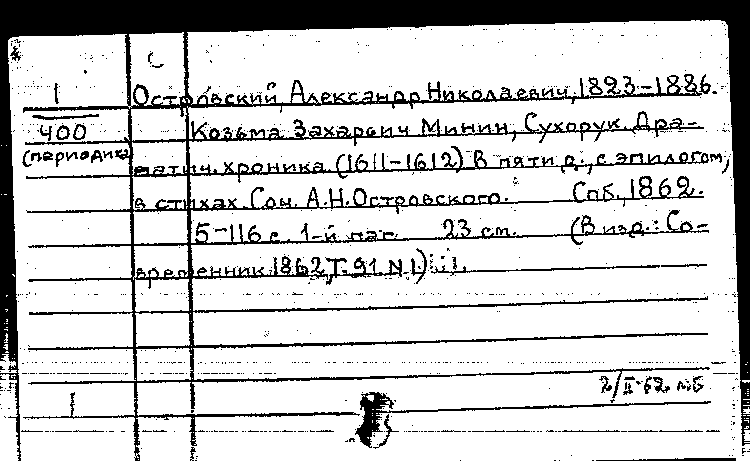 С
1
Островский, Александр Николаевич, 1823-1886.
400
(периодика)
Козьма Захарьич Минин, Сухорук. Дра-
матич. хроника (1611-1612) В пяти д., с эпилогом,
в стихах. Соч. А.Н.Островского. Спб., 1862.
5-116 с. 1-й паг. 23 см. (В изд.: Со-
временник 1862, Т. 91 N 1)
2/II-62. мб
1